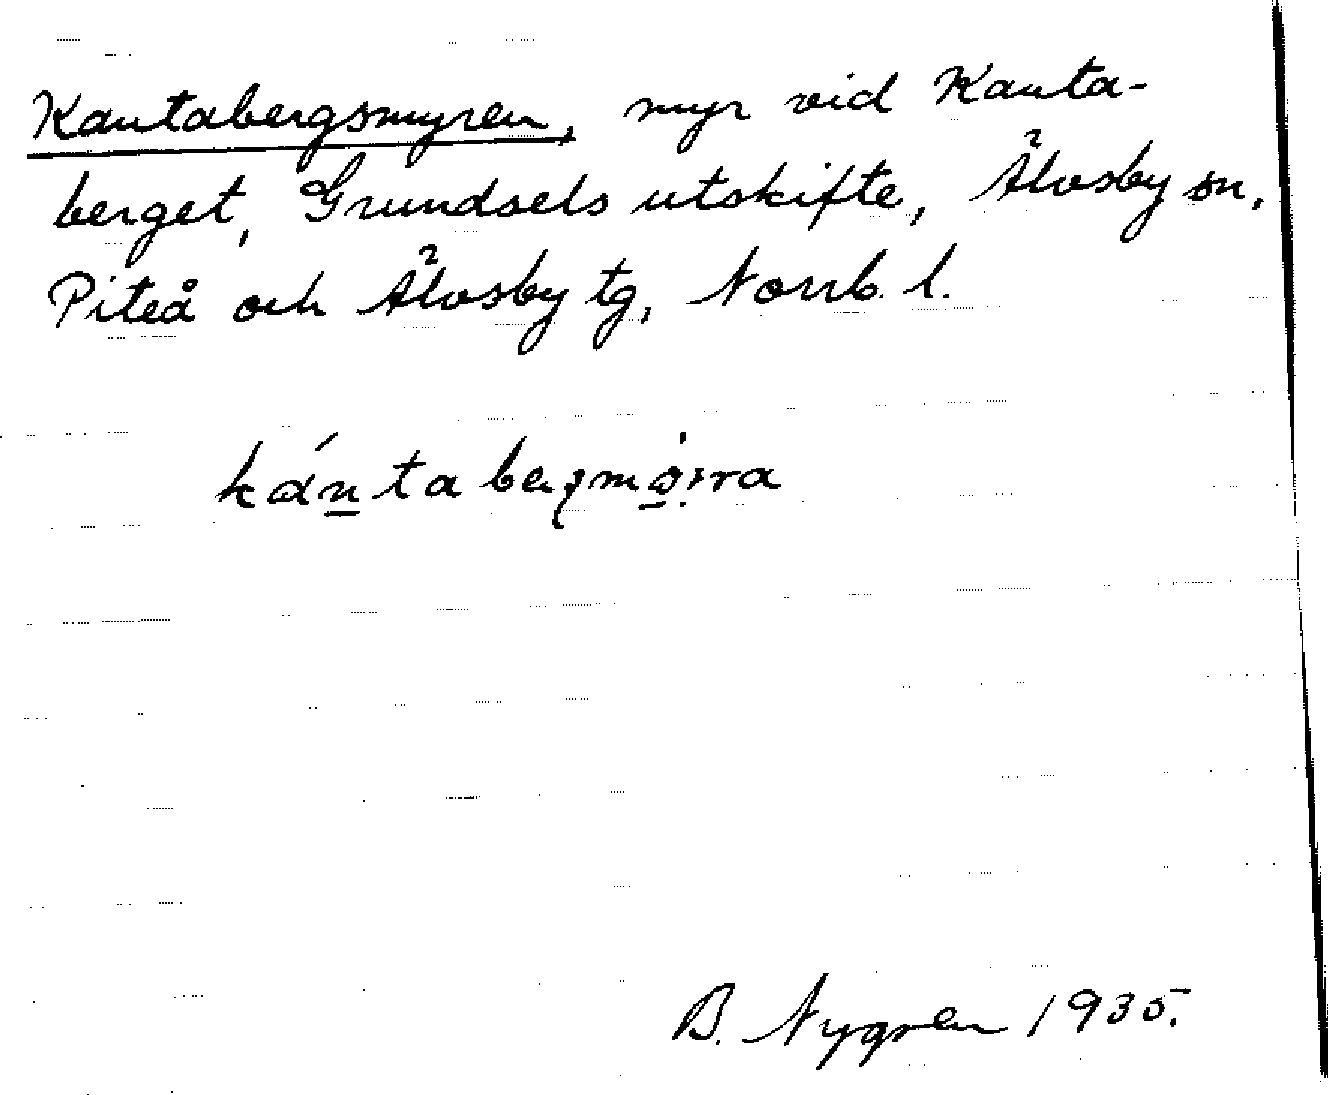 Kantabergsmyren, myr vid Kanta-
berget, Grundsels utskifte, Älvsby sn,
Piteå och Älvsby tg, Norrb. l.
B. Nygren 1935.